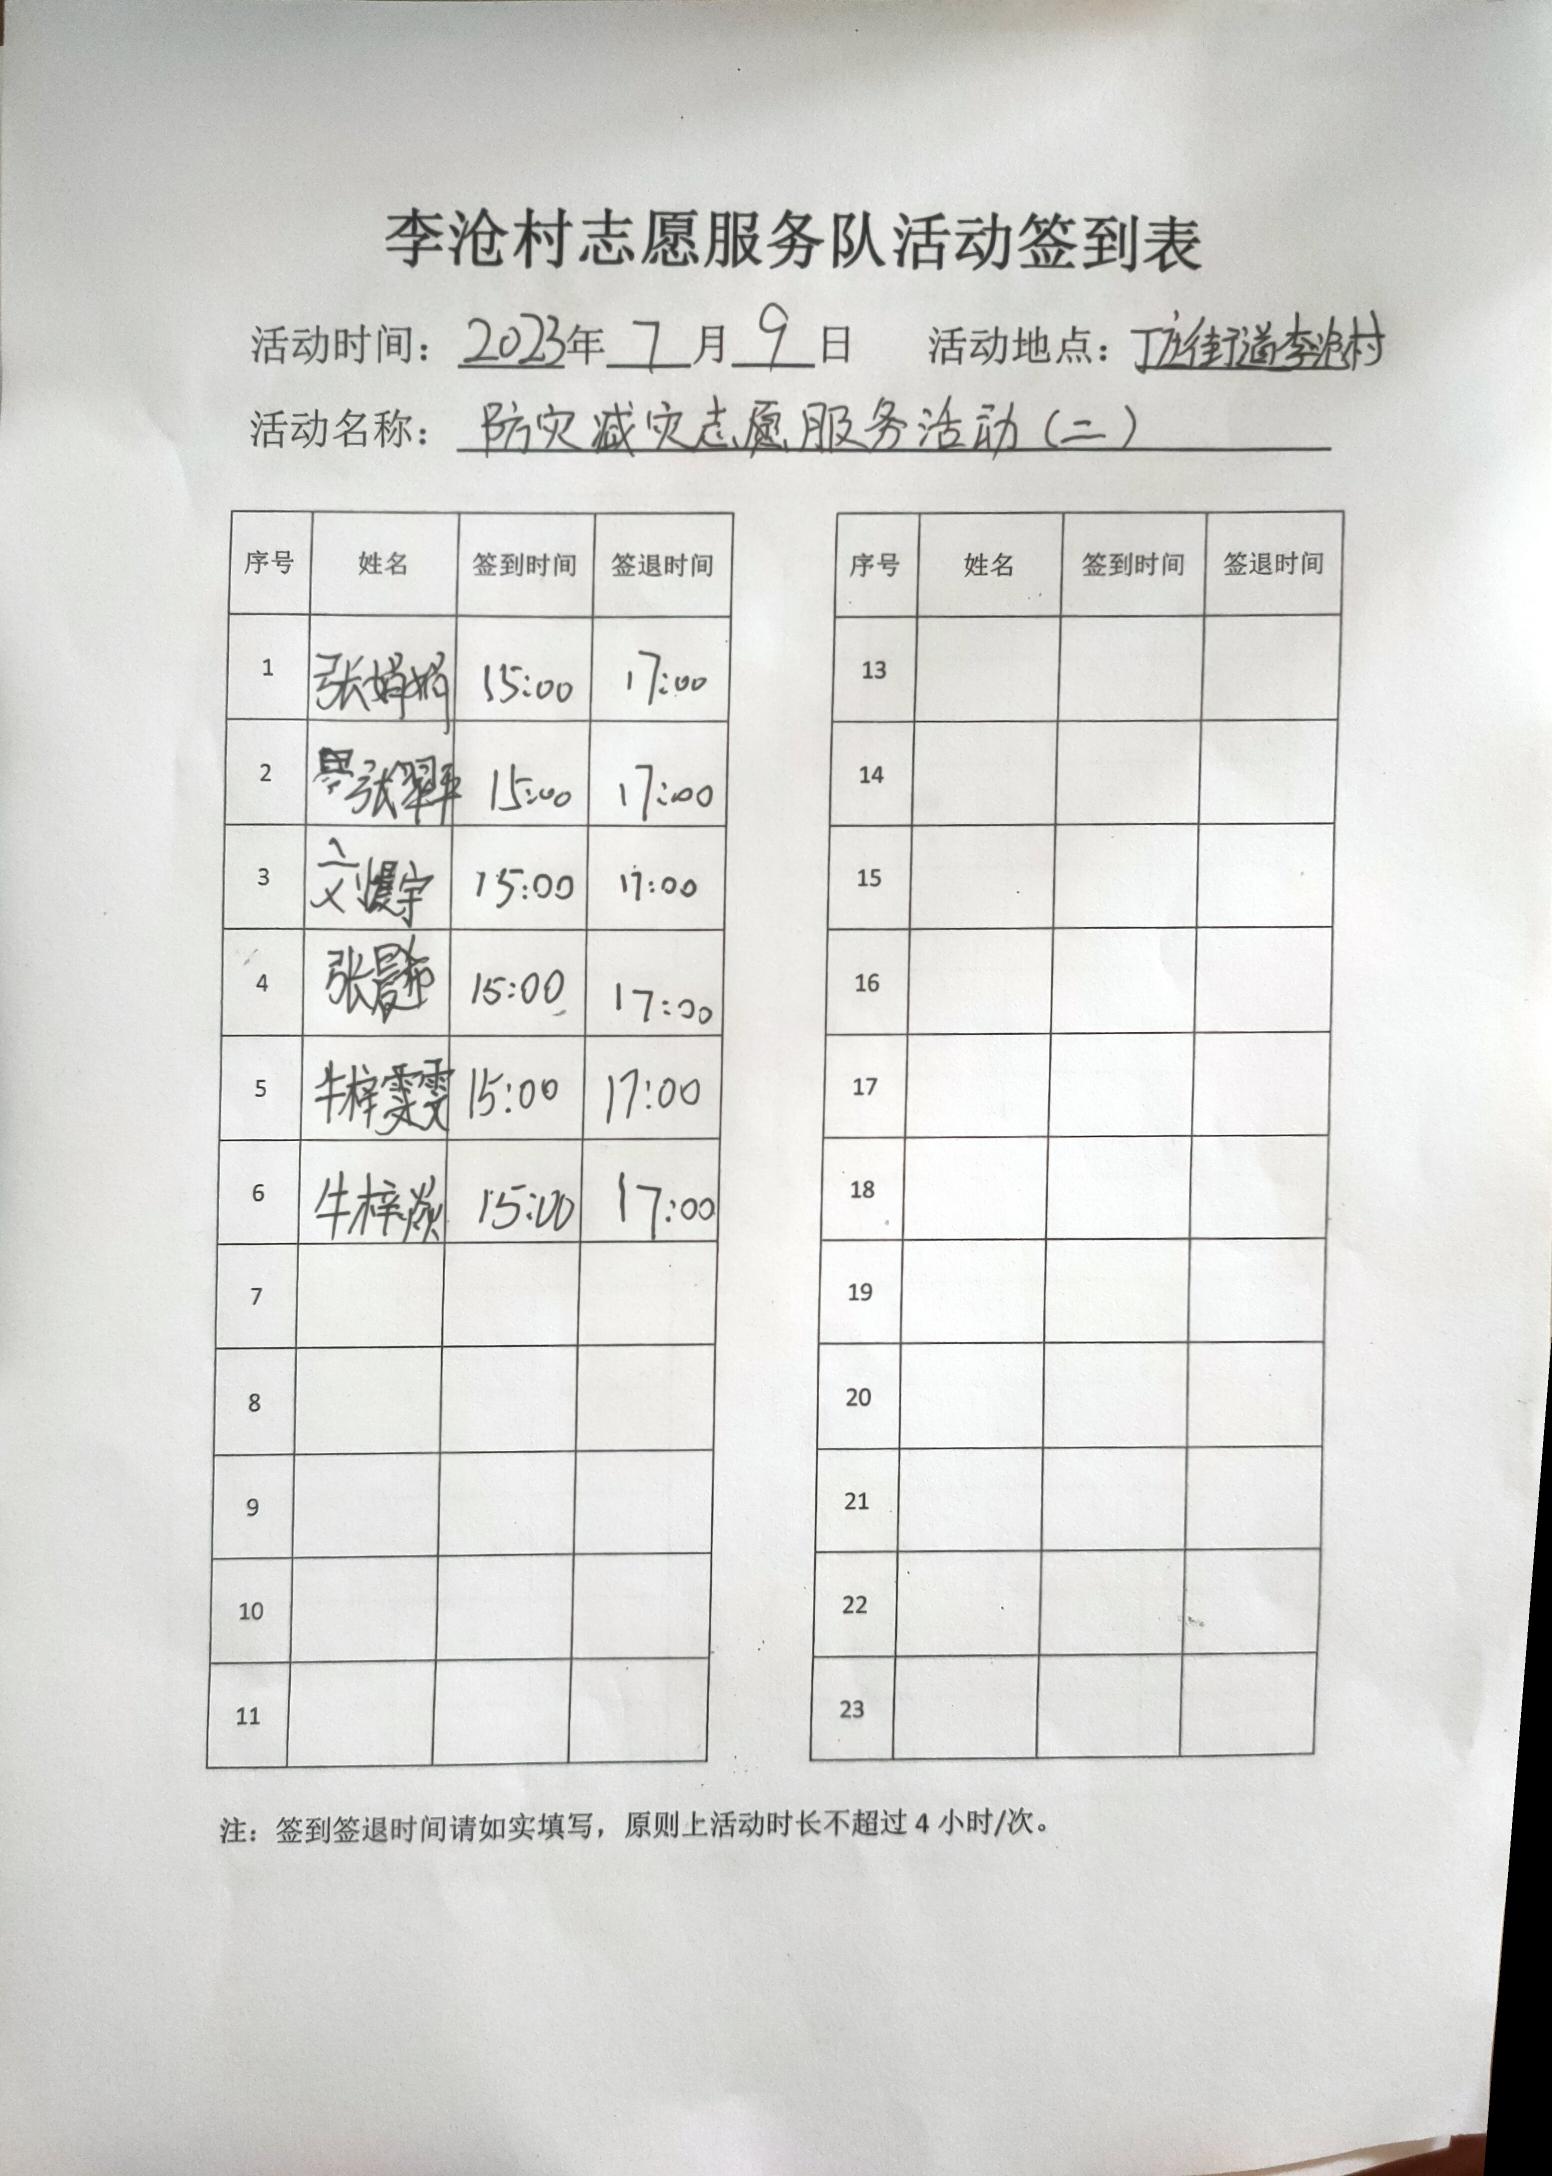 李沧村志愿服务队活动签到表
活动时间：2023年7月9日 活动地点：丁庄街道李沧村
活动名称：防灾减灾志愿服务活动（二）
序号 姓名 签到时间 签退时间 序号 姓名 签到时间 签退时间
1 张娟娟 15:00 17:00 13
2 张翠平 15:00 17:00 14
3 15:00 17:00 15
4 张 15:00 17:00 16
5 牛梓雯雯 15:00 17:00 17
6 牛梓焱 15:00 17:00 18
7 19
8 20
9 21
10 22
11 23
注：签到签退时间请如实填写，原则上活动时长不超过4小时/次。